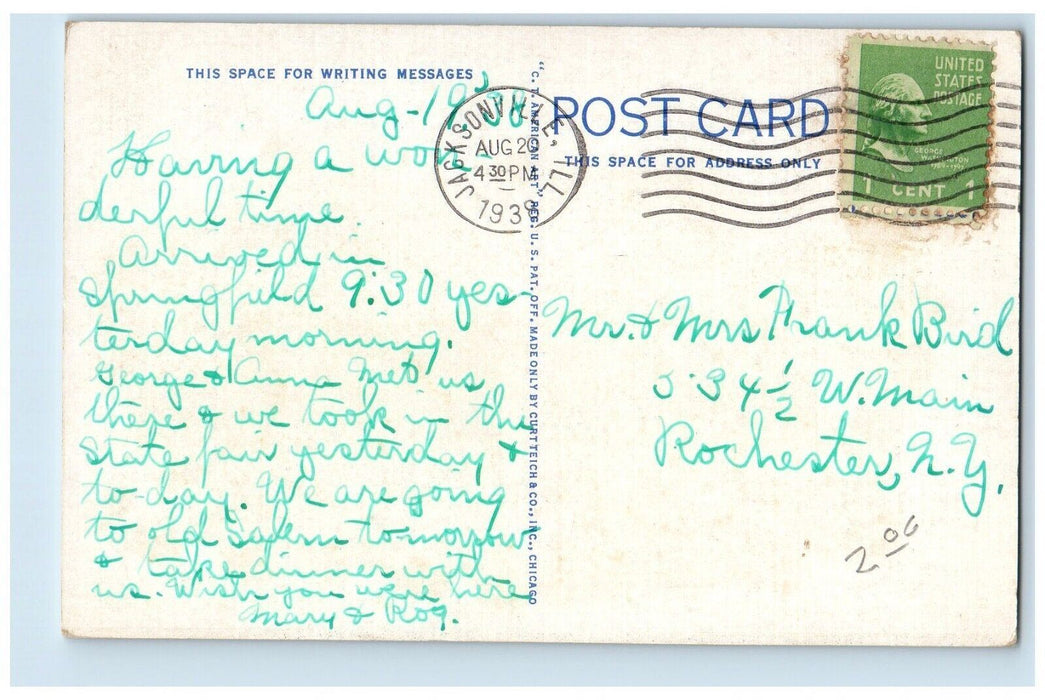 THIS SPACE FOR WRITING MESSAGES
Aug-19
Having a won-
derful time.
Arrived in
Springfield 9:30 yes-
terday morning.
George & Anna Met us
there & we took in the
State fair yesterday &
to-day. We are going
to old Salem to-morrow
& take dinner with
us. Wish you were here
Mary & Rog.
"C. T. AMERICAN ART" REG. U. S. PAT. OFF. MADE ONLY BY CURT TEICH & CO., INC., CHICAGO
JACKSONVILLE, ILL.
AUG 20
4 30 PM
POST CARD
THIS SPACE FOR ADDRESS ONLY
UNITED
STATES
POSTAGE
GEORGE
WASHINGTON
1 CENT 1
Mr. & Mrs Frank Bird
534 1/2 W. Main
Rochester, N.Y.
2 00